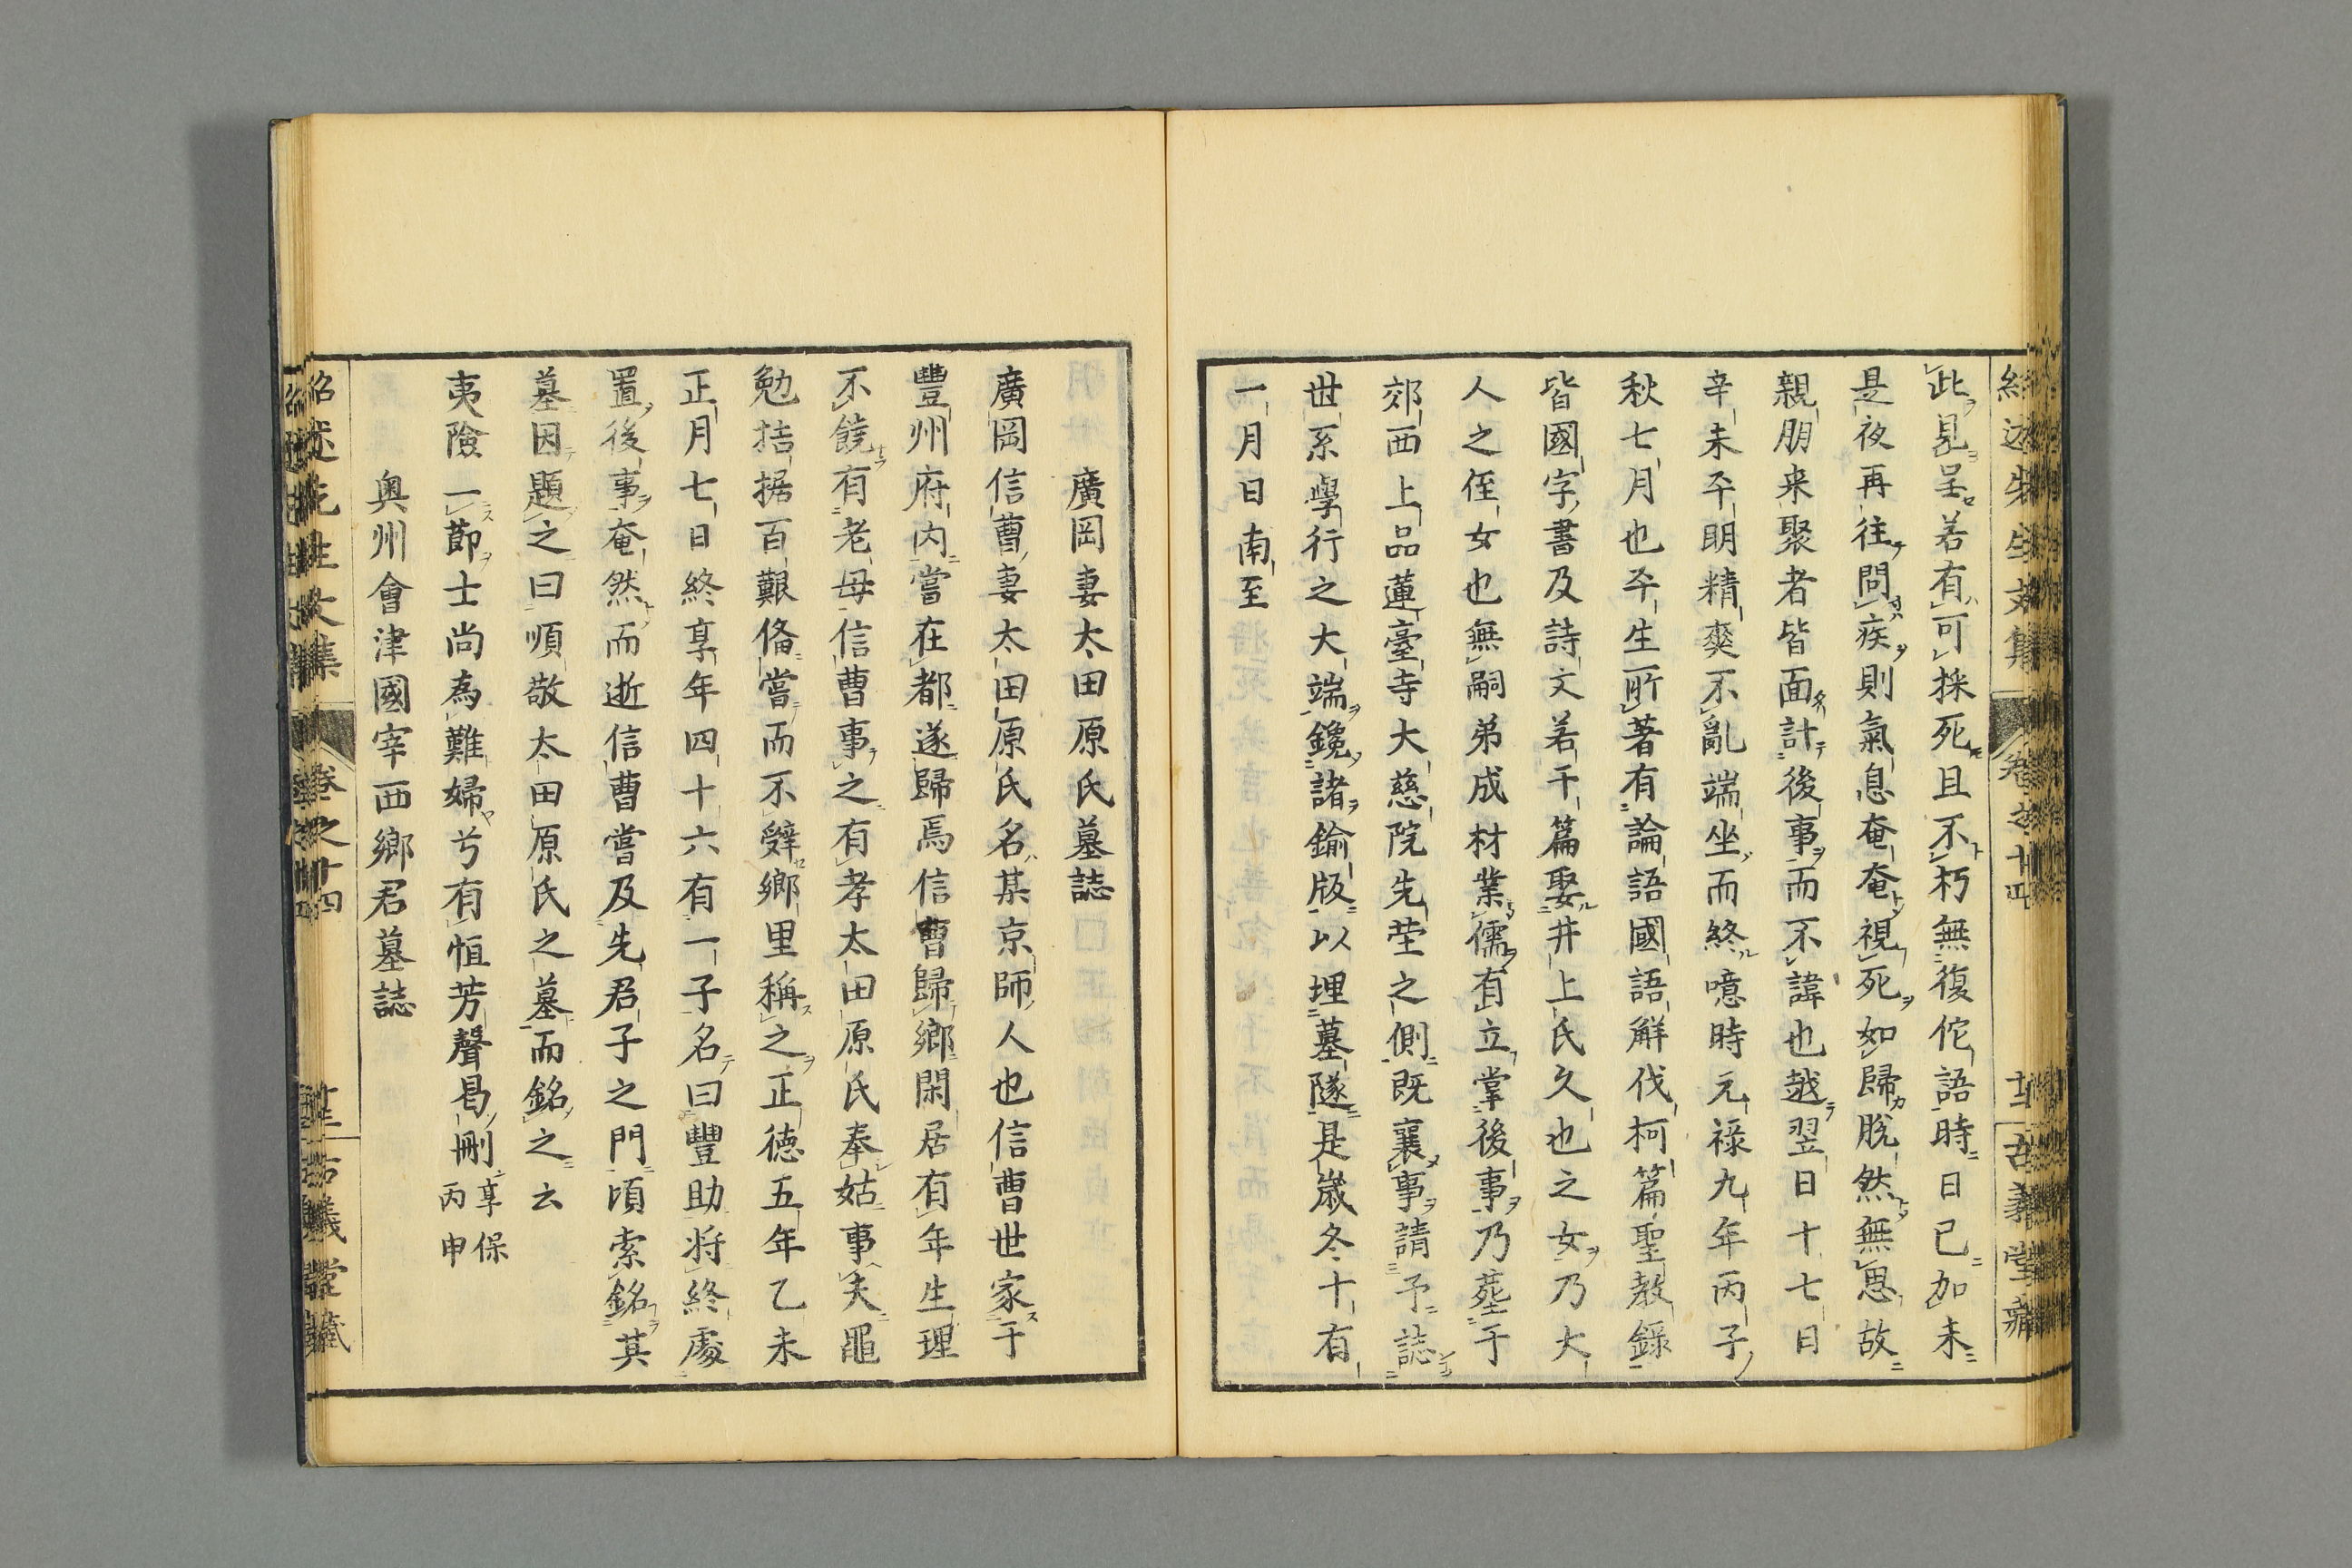 此見呈若有可採死且不朽無復佗語時日已加未
是夜再往問疾則氣息奄奄視死如歸脫然無思故
親朋来聚者皆面計後事而不諱也越翌日十七日
辛未平明精爽不亂端坐而終噫時元禄九年丙子
秋七月也平生所著有論語國語解伐柯篇聖教錄
皆國字書及詩文若干篇娶井上氏久也之女乃大
人之侄女也無嗣弟成材業儒有立掌後事乃塟于
郊西上品蓮臺寺大慈院先塋之側既襄事請予誌
世系學行之大端鑱諸鍮版以埋墓隧是歲冬十有
一月日南至
紹述先生文集 卷之十四 古義堂藏
廣岡妻太田原氏墓誌
廣岡信曹妻太田原氏名某京師人也信曹世家于
豐州府內嘗在都遂歸焉信曹歸鄉閑居有年生理
不饒有老母信曹事之有孝太田原氏奉姑事夫黽
勉拮据百艱俻嘗而不辤鄉里稱之正徳五年乙未
正月七日終享年四十六有一子名曰豐助将終處
置後事奄然而逝信曹嘗及先君子之門頃索銘其
墓因題之曰順敬太田原氏之墓而銘之云
夷險一莭士尚為難婦兮有恒芳聲曷刪 享保丙申
奥州會津國宰西鄉君墓誌
紹述先生文集 卷之十四 古義堂藏